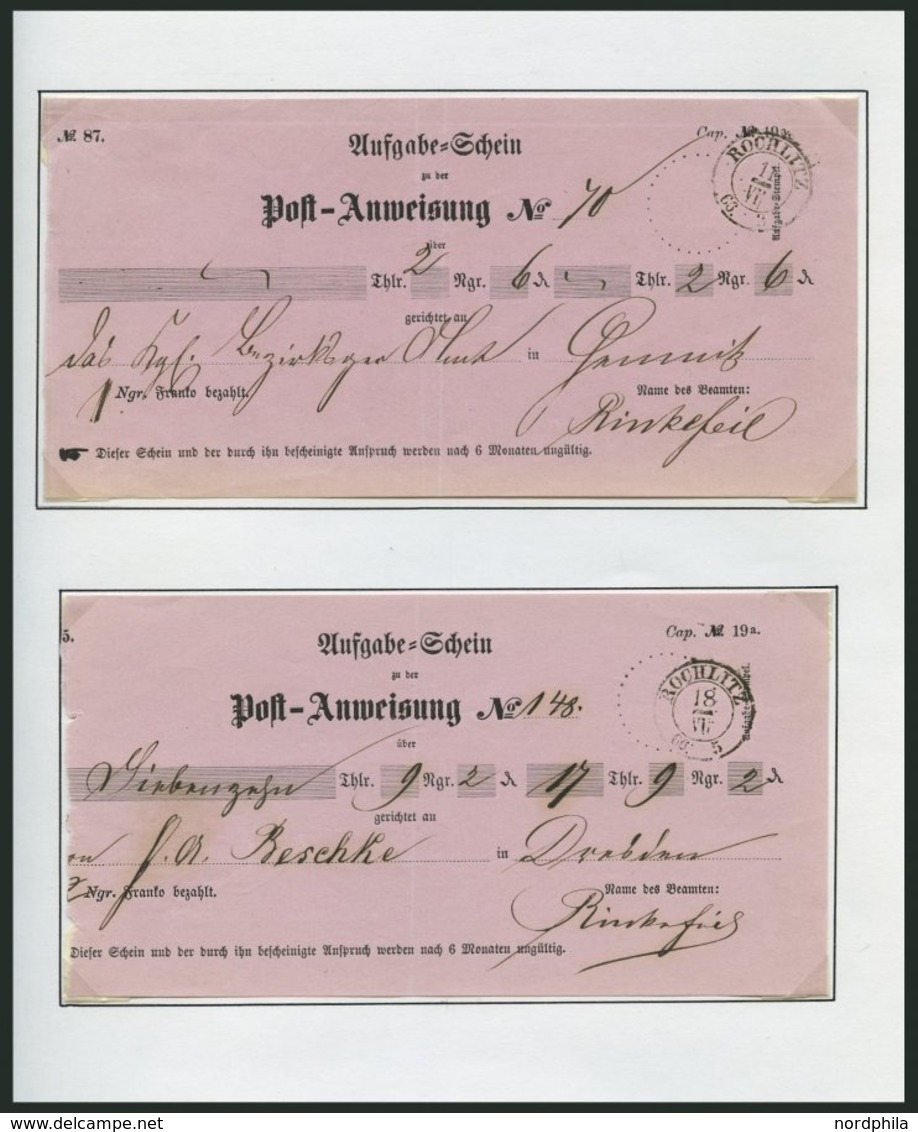 № 87.
Aufgabe=Schein
Cap. № 19a.
zu der
Post-Anweisung No 70
ROCHLITZ
11
VII
63.
Aufgabe-Stempel.
über
Thlr. 2 Ngr. 6 ₰ Thlr. 2 Ngr. 6 ₰
gerichtet an
das Kgl. in
1 Ngr. Franko bezahlt.
Name des Beamten:
Rinkefeil
Dieser Schein und der durch ihn bescheinigte Anspruch werden nach 6 Monaten ungültig.
5.
Aufgabe=Schein
Cap. № 19a.
zu der
Post-Anweisung No 148.
ROCHLITZ
18
VII
5
über
Siebenzehn Thlr. 9 Ngr. 2 ₰ 17 Thlr. 9 Ngr. 2 ₰
gerichtet an
A. Beschke in Dresden
Ngr. Franko bezahlt.
Name des Beamten:
Rinkefeil
Dieser Schein und der durch ihn bescheinigte Anspruch werden nach 6 Monaten ungültig.
www.delcampe.net
nordphila